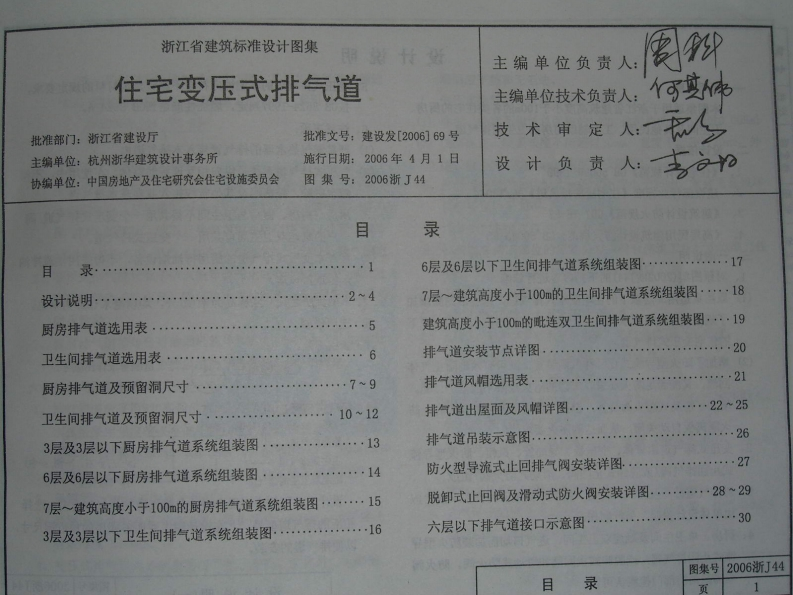 浙江省建筑标准设计图集
住宅变压式排气道
批准部门：浙江省建设厅
批准文号：建设发[2006]69号
主编单位：杭州浙华建筑设计事务所
施行日期：2006年4月1日
协编单位：中国房地产及住宅研究会住宅设施委员会
图集号：2006浙J44
主编单位负责人：
主编单位技术负责人：
技术审定人：
设计负责人：
目 录
目 录·······1
设计说明·······2~4
厨房排气道选用表·······5
卫生间排气道选用表·······6
厨房排气道及预留洞尺寸·······7~9
卫生间排气道及预留洞尺寸·······10~12
3层及3层以下厨房排气道系统组装图·······13
6层及6层以下厨房排气道系统组装图·······14
7层~建筑高度小于100m的厨房排气道系统组装图·······15
3层及3层以下卫生间排气道系统组装图·······16
6层及6层以下卫生间排气道系统组装图·······17
7层~建筑高度小于100m的卫生间排气道系统组装图·····18
建筑高度小于100m的毗连双卫生间排气道系统组装图····19
排气道安装节点详图·······20
排气道风帽选用表·······21
排气道出屋面及风帽详图·······22~25
排气道吊装示意图·······26
防火型导流式止回排气阀安装详图·······27
脱卸式止回阀及滑动式防火阀安装详图·······28~29
六层以下排气道接口示意图·······30
目 录
图集号 2006浙J44
页 1